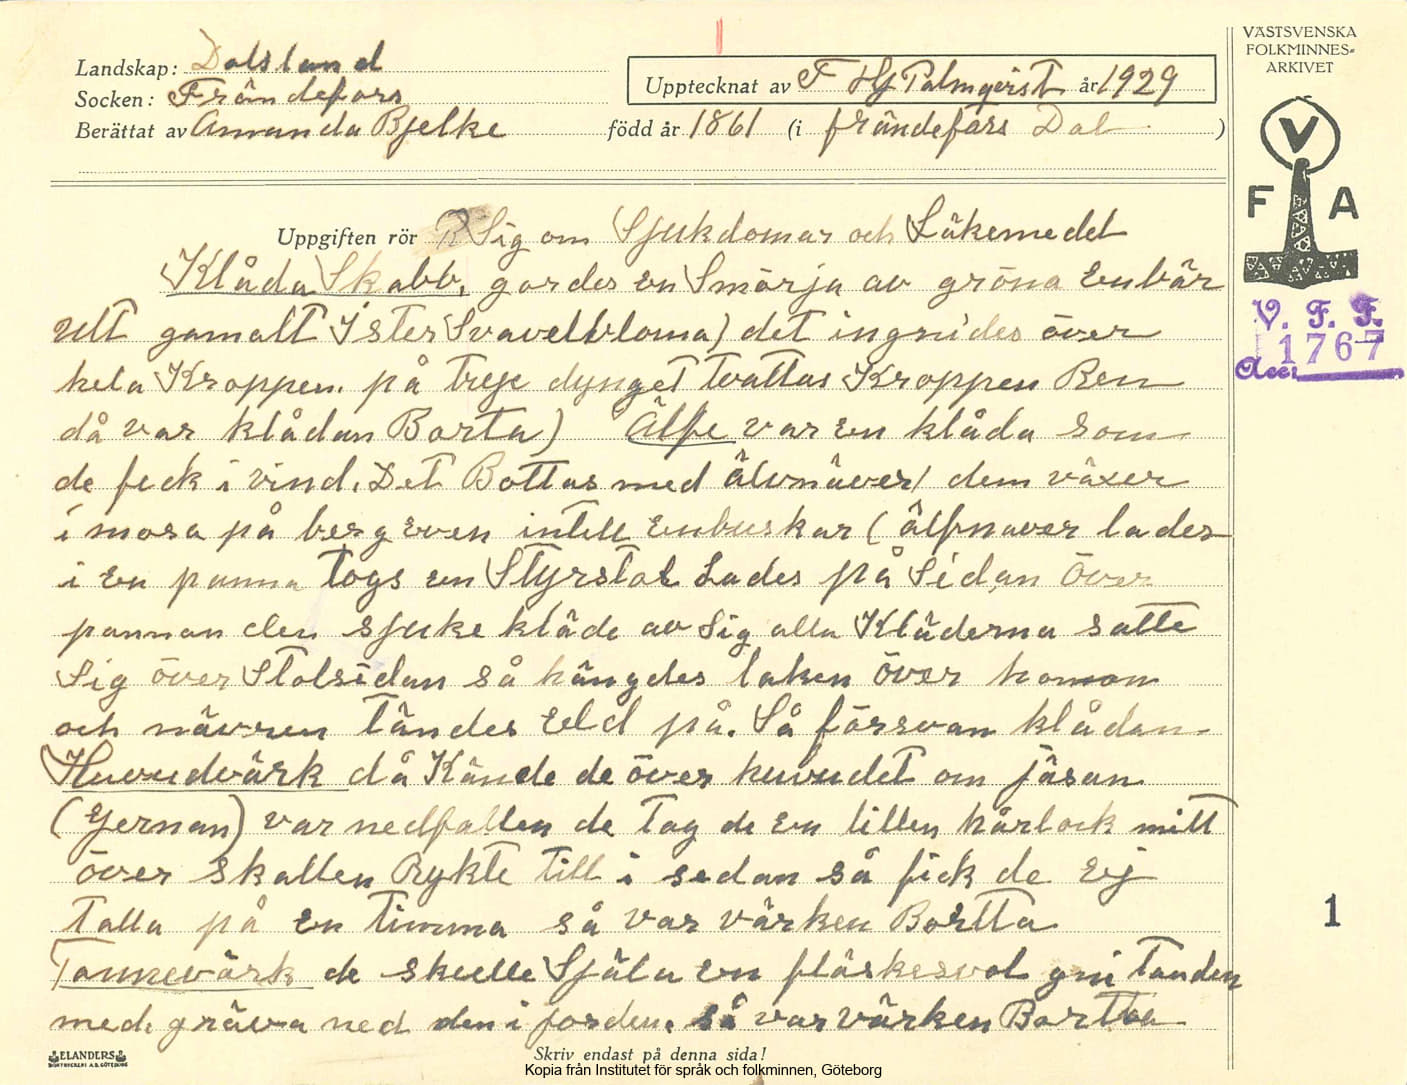 VÄSTSVENSKA
FOLKMINNES-
ARKIVET
Landskap: Dalsland
Socken: Frändefors
Upptecknat av F Hj Palmqvist år 1929
Berättat av Amanda Bjelke född år 1861 (i frändefors Dal )
V
F A
Uppgiften rör Sig om Sjukdomar och Läkemedel
Klåda Skabb, gordes en Smörja av gröna Enbär
utt gamalt Ister Svavelbloma) det ingnides över
hela Kroppen. på treje dynget tvattas Kroppen Ren
då var klådan Borta) Älfe var en klåda som
de feck i vind. Det Bottas med älvnäver/ dem växer
i mosa på berg even intill Enbuskar (älfnaver lades
i en panna togs en Styrstol Lades på Sidan över
pannan den sjuke kläde av sig alla Kläderna satte
Sig över Stolsidan så hängdes laken över honom
och nävren tändes Eld på. Så försvan klådan
Huvudvärk då Kände de över huvudet om jäsan
(gernan) var nedfallen de tog de en lillen hårlock mitt
över skallen Rykte till i sedan så fick de Ej
talla på en timma så var värken Bortta
Tannevärk de skulle Själa en fläskesvol gni Tanden
med gräva ned den i jorden. så var värken Bortta
V. F. F.
Acc: 1767
1
ELANDERS
BOKTRYCKERI A.B. GÖTEBORG
Skriv endast på denna sida!
Kopia från Institutet för språk och folkminnen, Göteborg